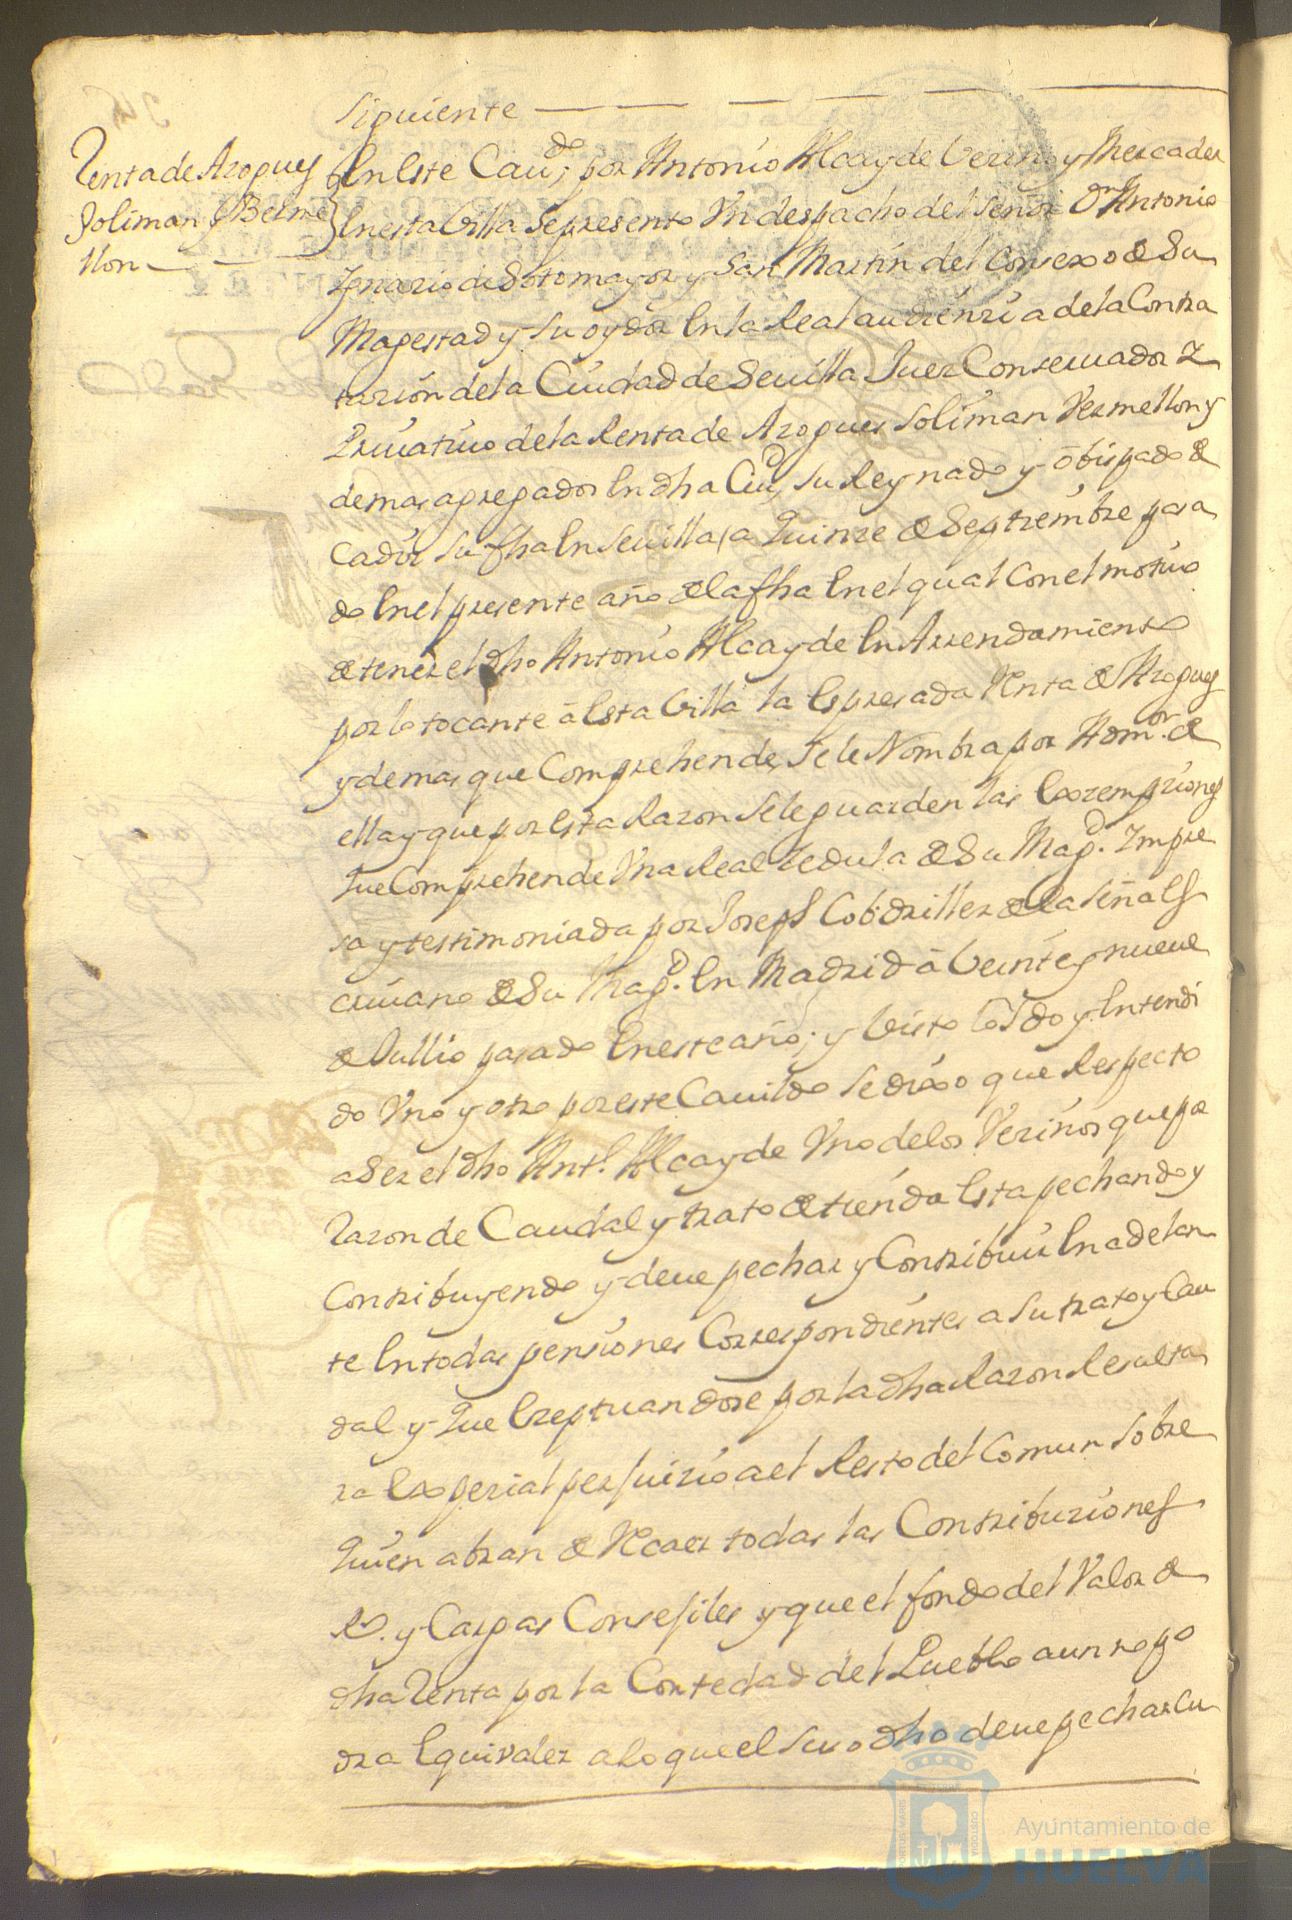 siguiente
Renta de Azogues
Soliman y Berme
llon
En Este Caudo, por Antonio Alcayde Vezino y Mercader
En esta Villa se presento Vn despacho del Señor Dn Antonio
Ignazio de Sotomayor y San Martin del Consexo de Su
Magestad y Su oydor En la Real audienzia de la Contra
tazion de la Ciudad de Seuilla Juez Conseruador y
Priuatiuo de la Renta de Azogues Soliman Vermellon y
demas agregados En dha Ciud, su Reynado y obispado de
Cadiz su fha En Seuilla, a Quinze de Septiembre pasa
do En el presente año de la fha En el qual Con el motiuo
de tener el dho Antonio Alcayde En Arrendamiento
por lo tocante â Esta Villa la Espresada Renta de Azogues
y demas que Comprehende, Se le Nombra por Admor. de
ella y que por Esta Razon Se le guarden las Exzempziones
que Comprehende Vna Real Zedula de Su Magd. Impre
sa y testimoniada por Joseph de la Señal Es
criuano de Su Magd. En Madrid â Veinte y nueue
de Jullio pasado En este año; y Visto Oydo y Entendi
do Vno y otro por este Cauildo se dixo que Respecto
a Ser el dho Antº. Alcayde Vno de los Vezinos que por
Razon de Caudal y trato de tienda Esta pechando y
Contribuyendo y deue pechar y Contribuir En adelan
te En todas pensiones Correspondientes a su trato y Cau
dal y que Ezeptuandose por la dha Razon Resulta
ra Expezial perjuizio a el Resto del Comun Sobre
quien abran de Recaer todas las Contribuziones
Rs. y Cargas Consejiles y que el fondo del Valor de
dha Renta por la Cortedad del Pueblo aun no po
dra Equivaler a lo que el suso dho deue pechar Cu
Ayuntamiento de
HUELVA